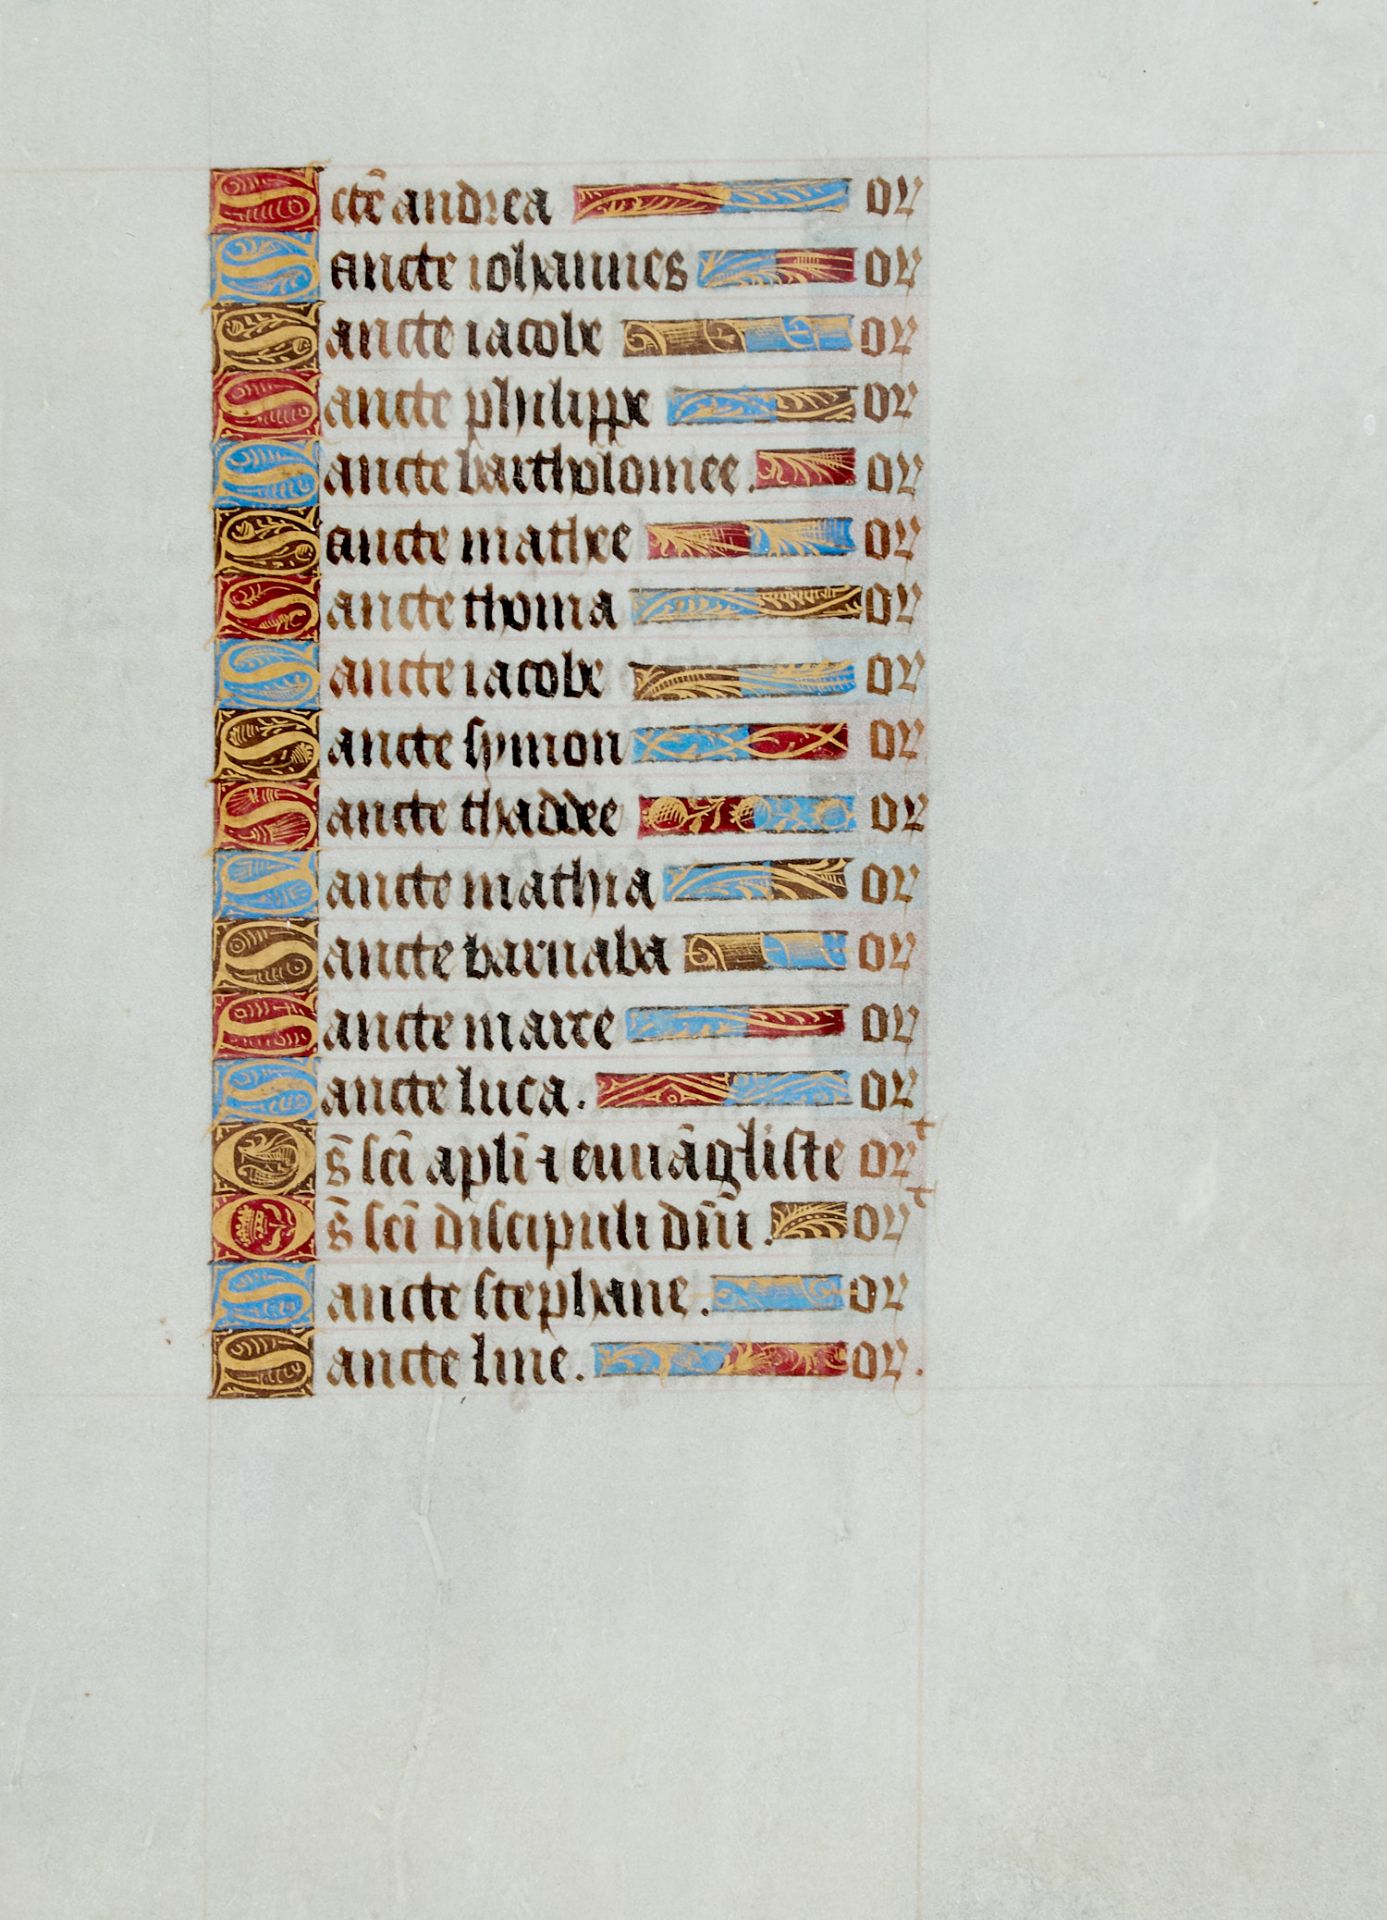 Scte᷒ andrea or
Sancte iohannes or
Sancte iacobe or
Sancte philippe or
Sancte bartholomee. or
Sancte mathee or
Sancte thoma or
Sancte iacobe or
Sancte symon or
Sancte thaddee or
Sancte mathia or
Sancte barnaba or
Sancte marce or
Sancte luca. or
Os̄ sci̅ apli̅ ⁊ euuāgliste orᵗ
Os̄ sci̅ discipuli dn̅i. orᵗ
Sancte stephane. or
Sancte line. or.